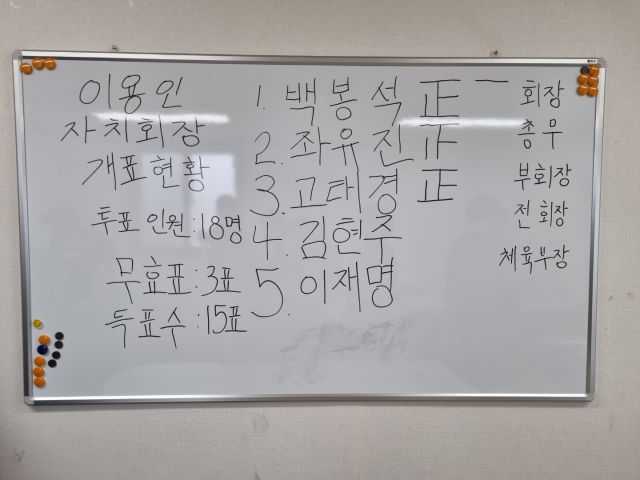 이용인
자치회장
개표현황
투표 인원:18명
무효표:3표
득표수:15표
1. 백봉석 正一
2. 좌유진 正
3. 고태경 正
4. 김현주
5. 이재명
회장
총무
부회장
전 회장
체육부장